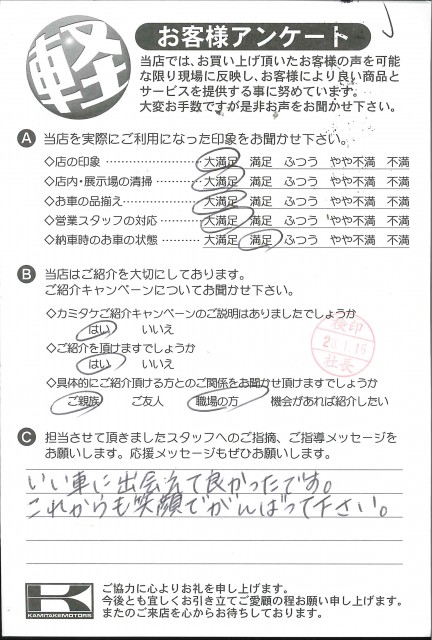 軽
お客様アンケート
当店では、お買い上げ頂いたお客様の声を可能
な限り現場に反映し、お客様により良い商品と
サービスを提供する事に努めています。
大変お手数ですが是非お声をお聞かせ下さい。
A 当店を実際にご利用になった印象をお聞かせ下さい。
◇店の印象 ………………… 大満足 満足 ふつう やや不満 不満
◇店内・展示場の清掃 ………… 大満足 満足 ふつう やや不満 不満
◇お車の品揃え ……………… 大満足 満足 ふつう やや不満 不満
◇営業スタッフの対応 ………… 大満足 満足 ふつう やや不満 不満
◇納車時のお車の状態 ………… 大満足 満足 ふつう やや不満 不満
B 当店はご紹介を大切にしております。
ご紹介キャンペーンについてお聞かせ下さい。
◇カミタケご紹介キャンペーンのご説明はありましたでしょうか
はい いいえ
◇ご紹介を頂けますでしょうか
はい いいえ
検印
社長
◇具体的にご紹介頂ける方とのご関係をお聞かせ頂けますでしょうか
ご親族 ご友人 職場の方 機会があれば紹介したい
C 担当させて頂きましたスタッフへのご指摘、ご指導メッセージを
お願いします。応援メッセージもぜひお願いします。
いい車に出会えて良かったです。
これからも笑顔でがんばって下さい。
K
KAMITAKEMOTORS
ご協力に心よりお礼を申し上げます。
今後とも宜しくお引き立てご愛顧の程お願い申し上げます。
またのご来店を心からお待ちしております。